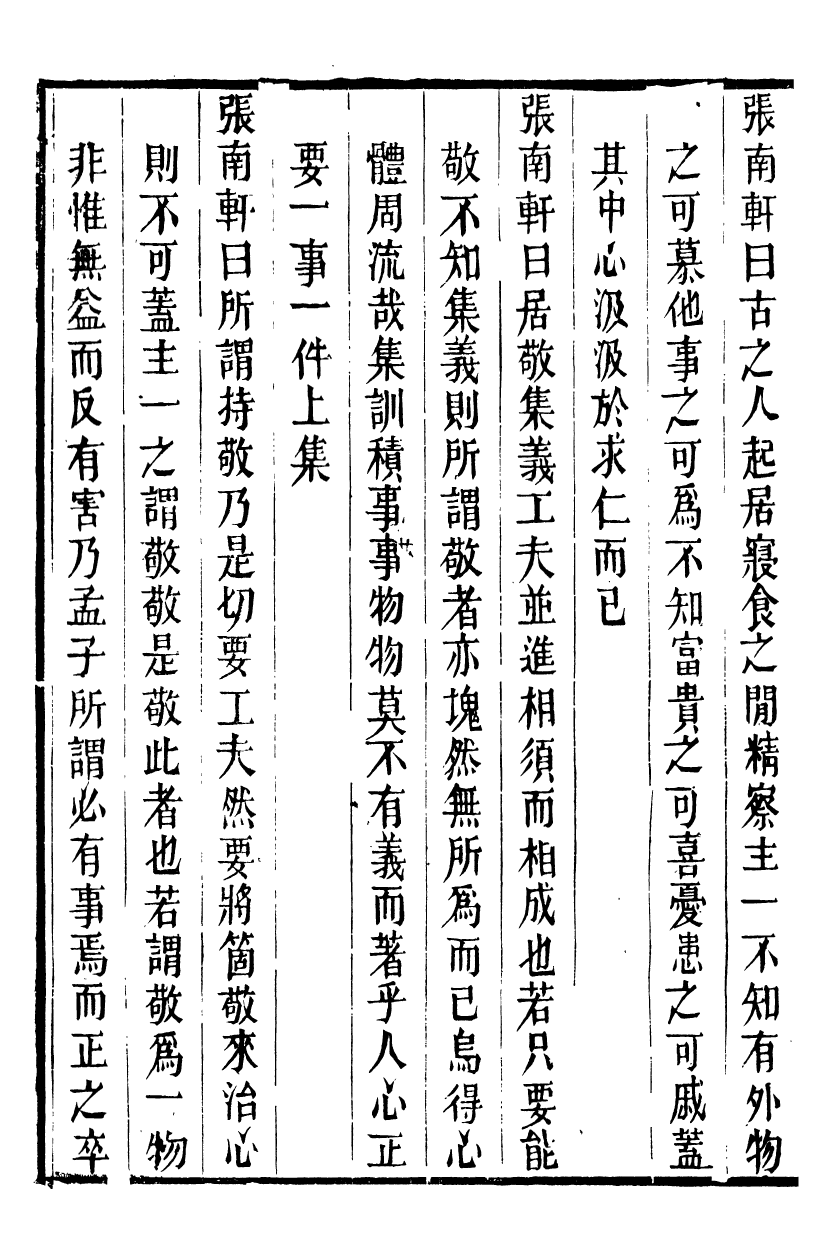 張南軒曰古之人起居寢食之閒精察主一不知有外物
之可慕他事之可爲不知富貴之可喜憂患之可戚蓋
其中心汲汲於求仁而已
張南軒曰居敬集義工夫並進相須而相成也若只要能
敬不知集義則所謂敬者亦塊然無所爲而已烏得心
體周流哉集訓積事事物物莫不有義而著乎人心正
要一事一件上集
張南軒曰所謂持敬乃是切要工夫然要將箇敬來治心
則不可蓋主一之謂敬敬是敬此者也若謂敬爲一物
非惟無益而反有害乃孟子所謂必有事焉而正之卒